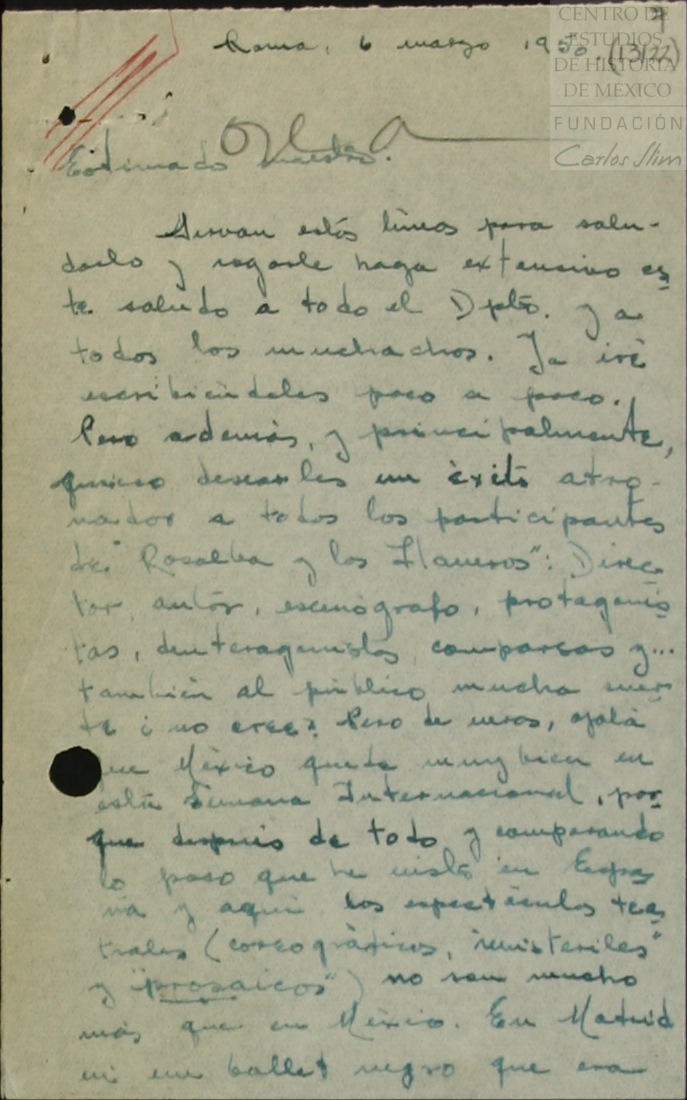 CENTRO DE
ESTUDIOS
DE HISTORIA
DE MÉXICO
FUNDACIÓN
Carlos Slim
Roma, 6 marzo 1950. (13/22)
Estimado Maestro.
Sirvan estás líneas para salu-
darlo y rogarle haga extensivo es
te saludo a todo el Dpto. y a
todos los muchachos. Ya iré
escribiéndoles poco a poco.
Pero además, y principalmente,
quiero desearles un éxito atro-
nador a todos los participantes
de "Rosalba y los Llaveros": Direc
tor, autor, escenógrafo, protagonis
tas, deuteragonistas, comparsas y...
también al público mucha suer
te ¿no cree? Pero de veras, ojalá
que México quede muy bien en
esta Semana Internacional, por
que después de todo y comparando
lo poco que he visto en Espa
ña y aquí los espectáculos tea
trales (coreográficos,
y "prosaicos") no son mucho
más que en México. En Madrid
vi un ballet negro que era